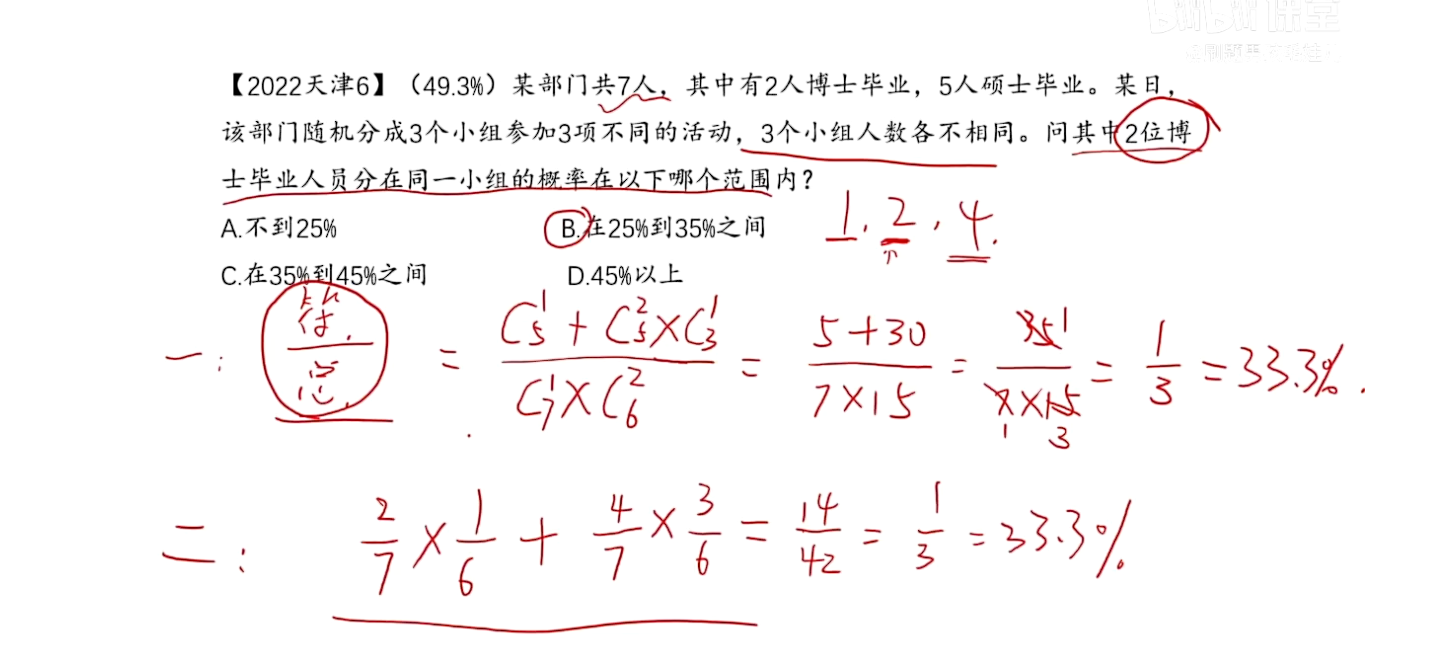 bilibili 课堂
【2022天津6】（49.3%）某部门共7人，其中有2人博士毕业，5人硕士毕业。某日，
该部门随机分成3个小组参加3项不同的活动，3个小组人数各不相同。问其中2位博
士毕业人员分在同一小组的概率在以下哪个范围内？
A.不到25% B.在25%到35%之间
C.在35%到45%之间 D.45%以上
1. 2. 4.
一: 符/总 = (C₅¹ + C₅² × C₃¹)/(C₇¹ × C₆²) = (5+30)/(7×15) = 35/(7×15) = 1/3 = 33.3%.
二: 2/7 × 1/6 + 4/7 × 3/6 = 14/42 = 1/3 = 33.3%